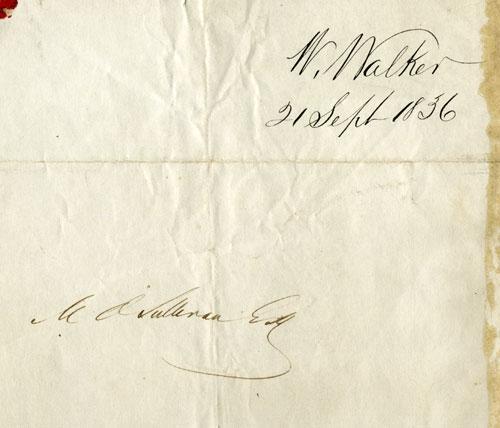 W. Walker
21 Sept 1836
M O'Sullivan Esq